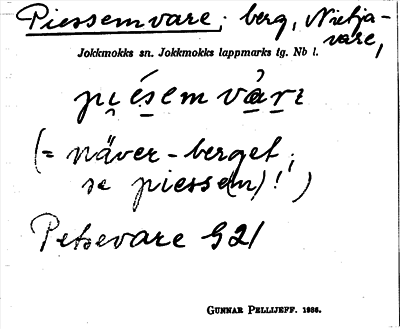 Piessemvare; berg, Nietja-
vare,
Jokkmokks sn. Jokkmokks lappmarks tg. Nb l.
pi̯ésem vàrɛ
(= näver-berget;
se piessem)!)
Petsevare G21
GUNNAR PELLIJEFF. 1986.